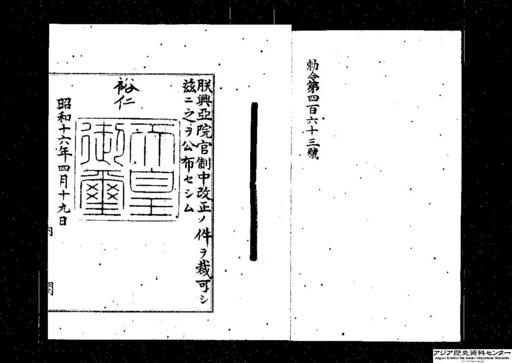 勅令第四百六十三號
朕興亞院官制中改正ノ件ヲ裁可シ
茲ニ之ヲ公布セシム
裕仁
天皇
御璽
昭和十六年四月十九日
内閣
アジア歴史資料センター
Japan Center for Asian Historical Records